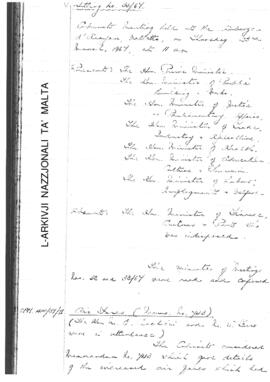 Cabinet meeting held at the Auberge
d'Aragon, Valletta, on Thursday
1967, at 11 a.m.
Present: The Hon. Prime Minister.
The Hon. Minister of Public
Building & Works.
The Hon. Minister of Justice
& Parliamentary Affairs.
The Hon. Minister of Trade,
Industry & Agriculture.
The Hon. Minister of Health.
The Hon. Minister of Education,
Culture & Tourism.
The Hon. Minister of Labour,
Employment & Welfare.
Absent: The Hon. Minister of Finance,
Customs & Port
was indisposed.
The minutes of Meetings
Nos. 32 and 33/67 were read and confirmed
(Memo. No.
were in attendance)
The Cabinet considered
Memorandum No. which gave details
of the increased air fares which had
L-ARKIVJI NAZZJONALI TA' MALTA